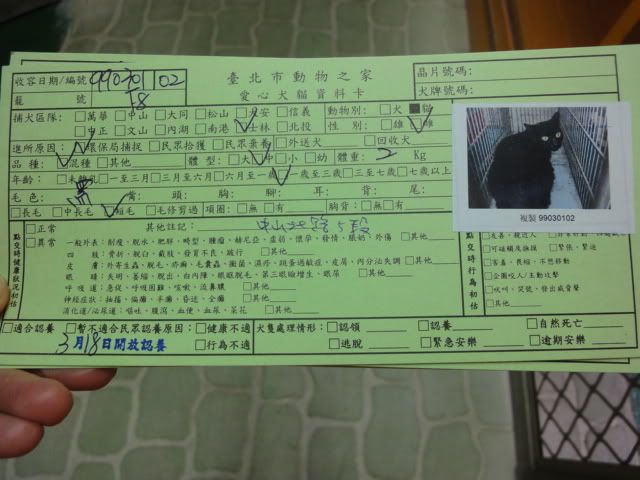 收容日期/編號 990301 02
籠 號 F8
臺北市動物之家
愛心犬貓資料卡
晶片號碼:
犬牌號碼:
捕犬區隊: □萬華 □中山 □大同 □松山 □大安 □信義
□中正 □文山 □內湖 □南港 □士林 □北投
動物別: □犬 ■貓
性 別: □雄 □雌
進所原因: □環保局捕捉 □民眾拾獲 □民眾棄養 □外送犬 □回收犬
品 種: □混種 □其他
體 型: □大 □中 □小 □幼 體重: 2 Kg
年齡: □一至三月 □三月至六月 □六月至一歲 □一歲至三歲 □三至七歲 □七歲以上
毛 色: 黑 背: 頭: 胸: 腳: 耳: 背: 尾:
□長毛 □中長毛 □短毛 □毛修剪過 項圈: □無 □有 胸背: □無 □有
複製 99030102
點交時健康狀況初估
□正常 其他註記: 中山北路5段
□異常 一般外表: 削瘦、脫水、肥胖、畸型、腫瘤、赫尼亞、虛弱、懷孕、發情、脹奶、外傷 □其他
四 肢: 骨折、脫臼、截肢、發育不良、跛行 □其他
皮 膚: 外寄生蟲、脫毛、疥癬、毛囊蟲、黴菌、濕疹、跳蚤過敏症、皮屑、內分泌失調 □其他
眼 睛: 失明、萎縮、脫出、白內障、眼瞼脫毛、第三眼瞼增生、眼屎 □其他
呼吸道: 急促、呼吸困難、咳嗽、流鼻膿 □其他
神經症狀: 抽搐、偏癱、半癱、昏迷、全癱 □其他
消化道/泌尿道: 嘔吐、腹瀉、血便、血尿、茶尿 □其他
□可碰觸及撫摸 □緊張、緊迫
□害羞、畏縮、不想移動
□企圖咬人/主動攻擊
□吠叫、哭號、發出威脅聲
□其他
□適合認養 □暫不適合民眾認養原因: □健康不適
□行為不適
3月18日開放認養
犬隻處理情形: □認領 □認養 □自然死亡
□逃脫 □緊急安樂 □逾期安樂